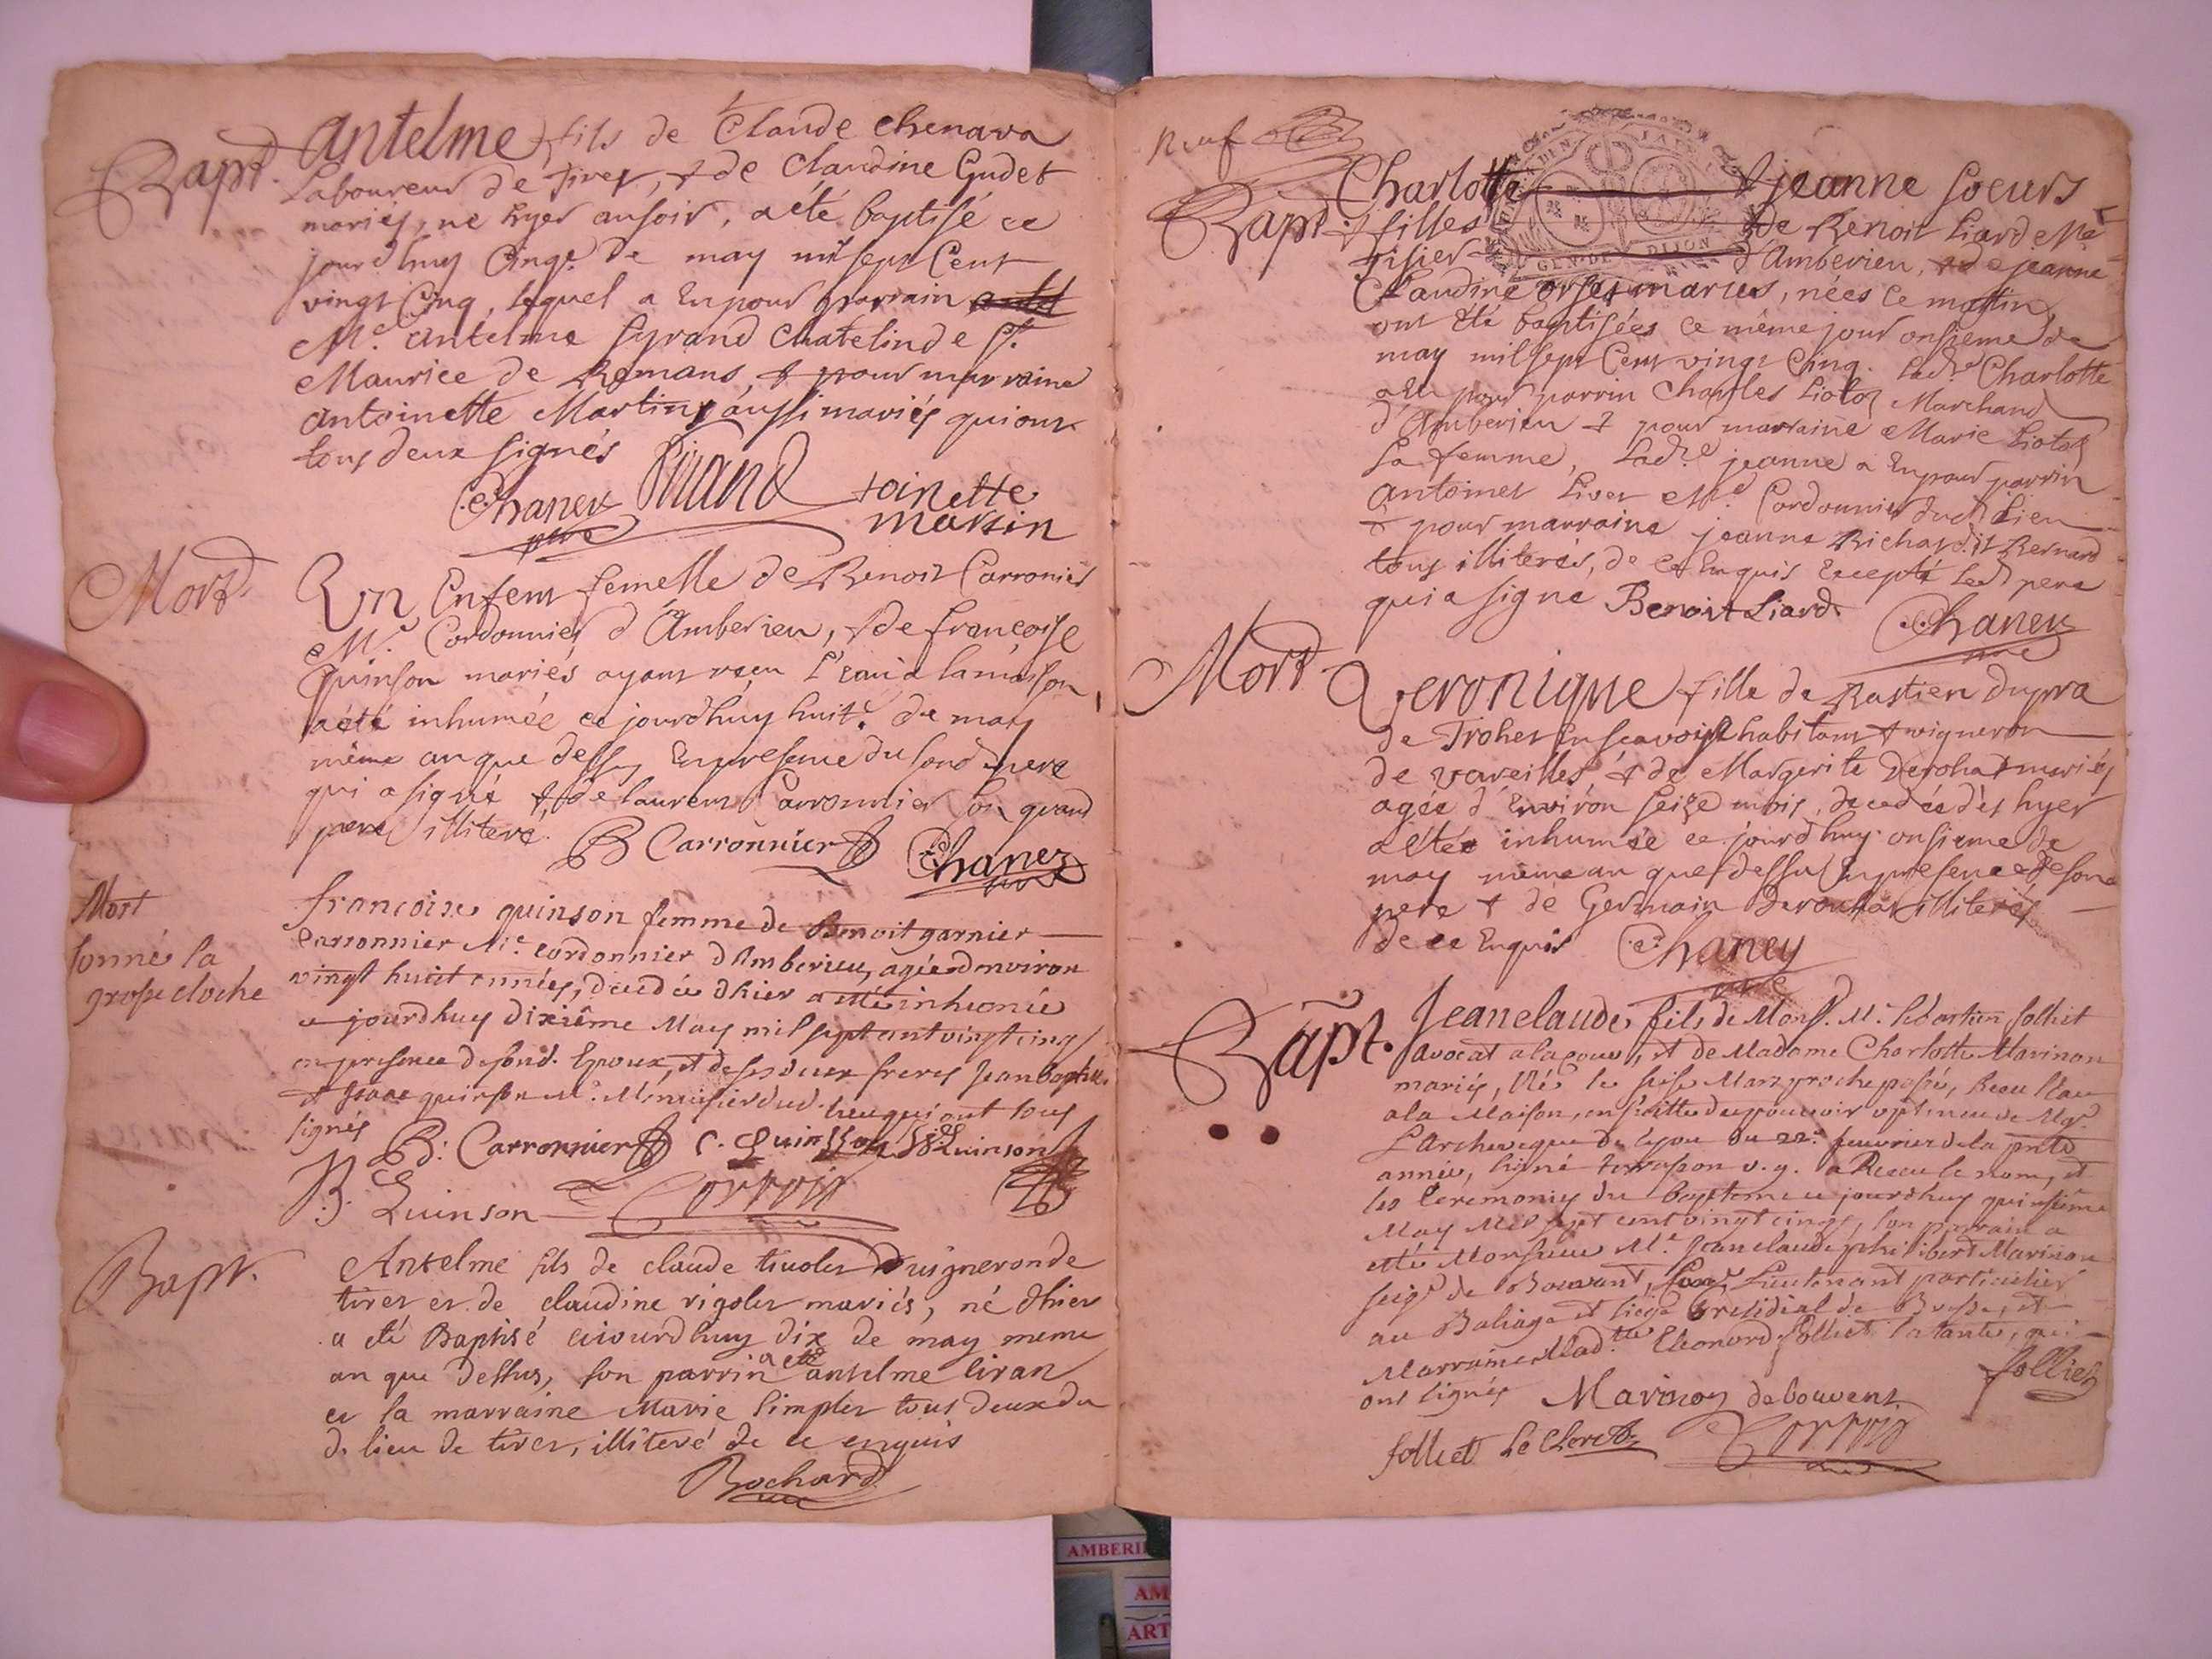 Bapt. Antelme fils de Claude Chenava
Laboureur de Tiret, & de Claudine Gudet
mariés, ne hyer au soir, a été baptisé ce
jourdhuy Cinqe de may mil sept Cent
vingt Cinq, lequel a Eu pour parrain
Me. Antelme Syrand Chatelin de St.
Maurice de Remans, & pour marraine
Antoinette Martin aussi mariés qui ont
tous deux signés
Chanez Sirand toinette
martin
Mort Un Enfent femelle de Benoit Carronier
Me. Cordonnier d'Amberieu, & de francoise
Quinson mariés ayant reçu l'eau a la maison,
a été inhumée ce jourdhuy huite. de may
même an que dessus En presence du sond. pere
qui a signé & de laurent Carronnier son grand
pere illiteré. B Carronnier Chanez
Mort
sonné la
grosse cloche
francoise quinson femme de Benoit garnier
Carronnier Me. cordonnier d'Amberieu, agée denviron
vingt huit années, decedée dhier a esté inhumée
ce jourdhuy dixiême May mil sept cent vingt cinq
en presence de sond. Epoux, et de ses deux freres Jean baptiste
et quinson Me. Menuisier dud. lieu qui ont tous
signés B: Carronnier C. Quinsson Quinson
B. Quinson
Bapt. Antelme fils de claude tinoler vigneron de
tiret et de claudine rigoler mariés, né dhier
a eté Baptisé ceiourdhuy dix de may meme
an que dessus, son parrin a eté antelme liran
et la marraine Marie simpler tous deux du
d. lieu de tiret, illiteré de ce enquis
Bochard
Neuf
Bapt Charlotte & jeanne soeurs
& filles de Benoit Liard Me
tisier d'Amberieu, & de jeanne
Claudine Orset mariés, nées ce matin,
ont été baptisées ce même jour onsieme de
may mil sept Cent vingt Cinq. Ladte Charlotte
a Eu pour parrin Charles Liotoz Marchand
d'Amberieu & pour marraine Marie Liotoz
sa femme, Ladte jeanne a Eu pour parrin
Antoinet Livet Me Cordonnier dud lieu
& pour marraine jeanne Richard dit Bernard
tous illiterés, de ce Enquis Excepté led pere
qui a signé Benoit Liard Chanez
Mort Veronique fille de Bastien Dupra
de Troher En Scavoye habitant & vigneron
de vareilles & de Margerite Derohat mariés
agée d'Environ seize mois, decedée dès hyer
a étée inhumée ce jourdhuy onsieme de
may même an que dessu En presence de son
pere & de Germain Derouhat illiterés
de ce Enquis Chaney
Bapt. Jean claude, fils de Mons. Me. Sebastien folliet
avocat a la cour, et de Madame Charlotte Marinon
mariés, Né le seise Mars proche passé, Receu l'eau
a la Maison, en suitte du pouvoir optineu de Mgr.
L'Archeveque de lyon du 22e. feuvrier de la pnte
année, signé terrasson v. g. a Receu le nom, et
les Ceremonies du bapteme ce jourdhuy quinsiême
May Mil sept cent vingt cinq, son parrain a
esté Monsieur Me. Jean claude philibert Marinon
seigr de Bouvant, Lieutenant particulier
au Baliage et siege presidial de Bresse, et
Marraine Madtte Eleonord folliet sa tante, qui
ont signés Marinon de bouvens. folliet
folliet Le Clerc